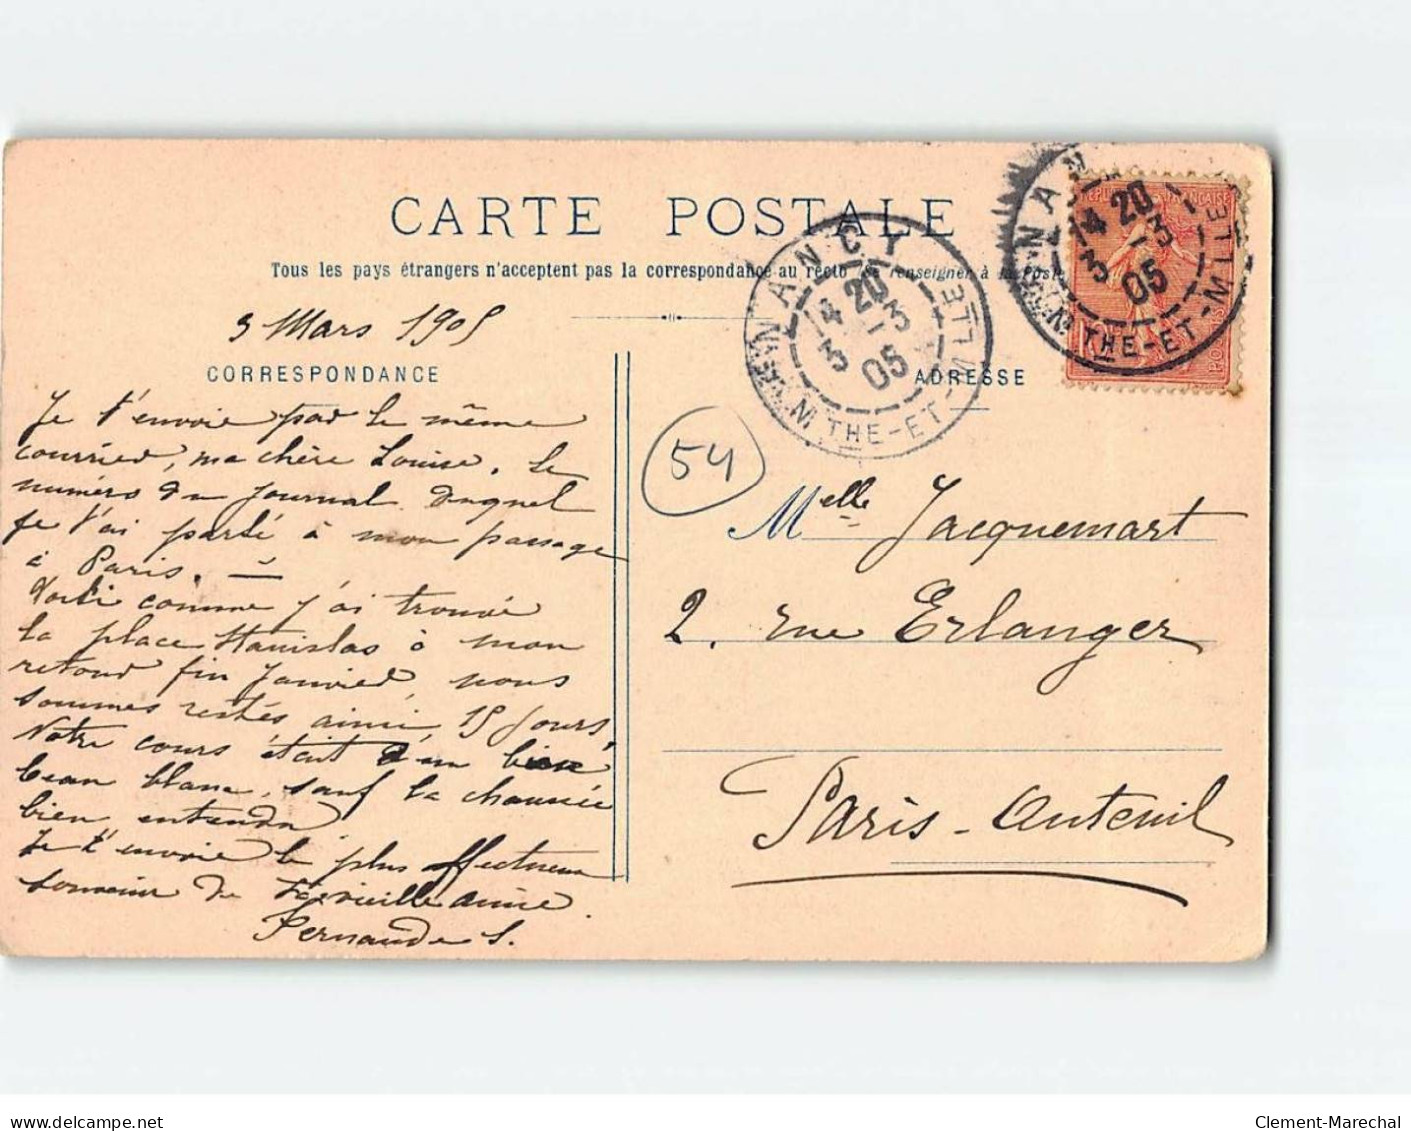 CARTE POSTALE
Tous les pays étrangers n'acceptent pas la correspondance au recto (se renseigner à la Poste
3 Mars 1905
CORRESPONDANCE
Je t'envoie par le même
courrier, ma chère Louise. Le
numéro du journal duquel
je t'ai parlé à mon passage
à Paris. —
Voici comme j'ai trouvé
la place Stanislas à mon
retour fin Janvier, nous
sommes restés ainsi 15 jours,
Notre cours était d'un bien
beau blanc, sauf la chaussée
bien entendu
Je t'envoie le plus affectueux
souvenir de ta vieille amie.
Fernande S.
NANCY
14 20
3 -3
05
MEURTHE-ET-MLLE
54
ADRESSE
Melle Jacquemart
2, rue Erlanger
Paris-Auteuil
NAN
14 20
3 -3
05
THE-ET-MLLE
POSTES
Clement-Marechal